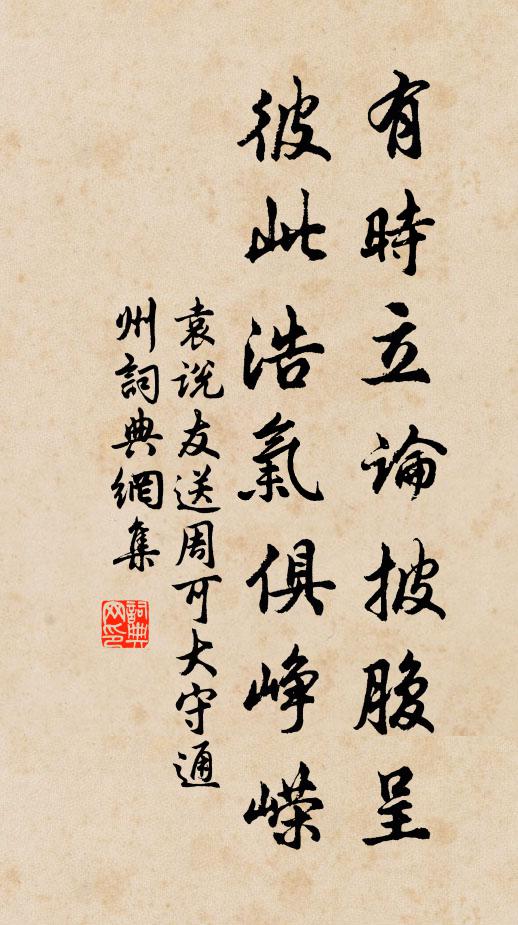 有時立論披腹呈
彼此浩氣俱崢嶸
袁說友送周可大守通
州詞典網集
詞典網印